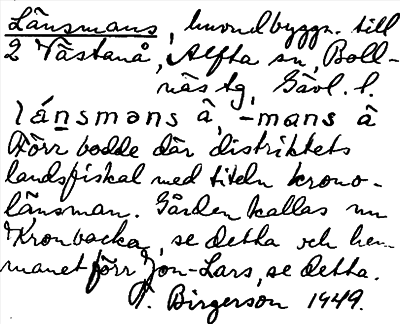 Länsmans, huvudbyggn. till
2 Västanå, Alfta sn, Boll-
näs tg, Gävl. l.
lánsmans â, -mans â
Förr bodde där distriktets
landsfiskal med titeln krono-
länsman. Gården kallas nu
Kronbacka, se detta och hem-
manet förr Jon-Lars, se detta.
J. Birgerson 1949.